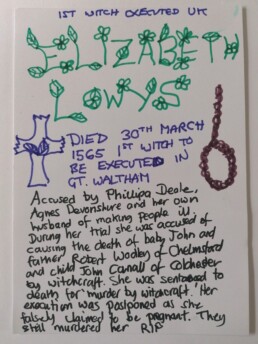 1ST WITCH EXECUTED UK
ELIZABETH
LOWYS
DIED 30TH MARCH
1565 1ST WITCH TO
BE EXECUTED IN
GT. WALTHAM
Accused by Phillipa Geale,
Agnes Devonshire and her own
husband of making people ill.
During her trial she was accused of
causing the death of baby John and
father Robert Wodley of Chelmsford
and child John Canall of Colchester
by witchcraft. She was sentenced to
death for murder by witchcraft. Her
execution was postponed as she
falsely claimed to be pregnant. They
still murdered her RIP